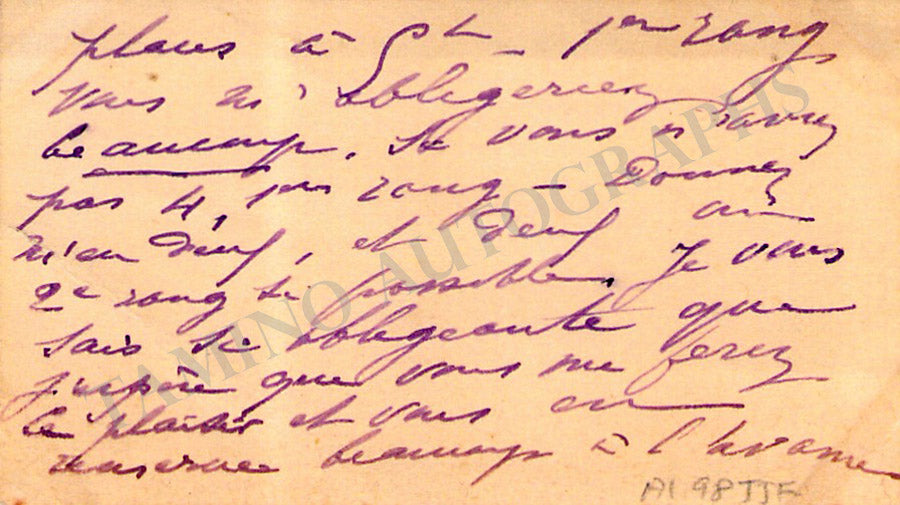 places à 1er rang
Vous m'obligeriez
beaucoup. Si vous n'avez
pas 4, 1ers rang – Donnez
m'en deux, et deux au
2e rang si possible. Je vous
sais si obligeante que
j'espère que vous me ferez
le plaisir et vous en
remercie beaucoup à l'avance
TAMINO AUTOGRAPHS